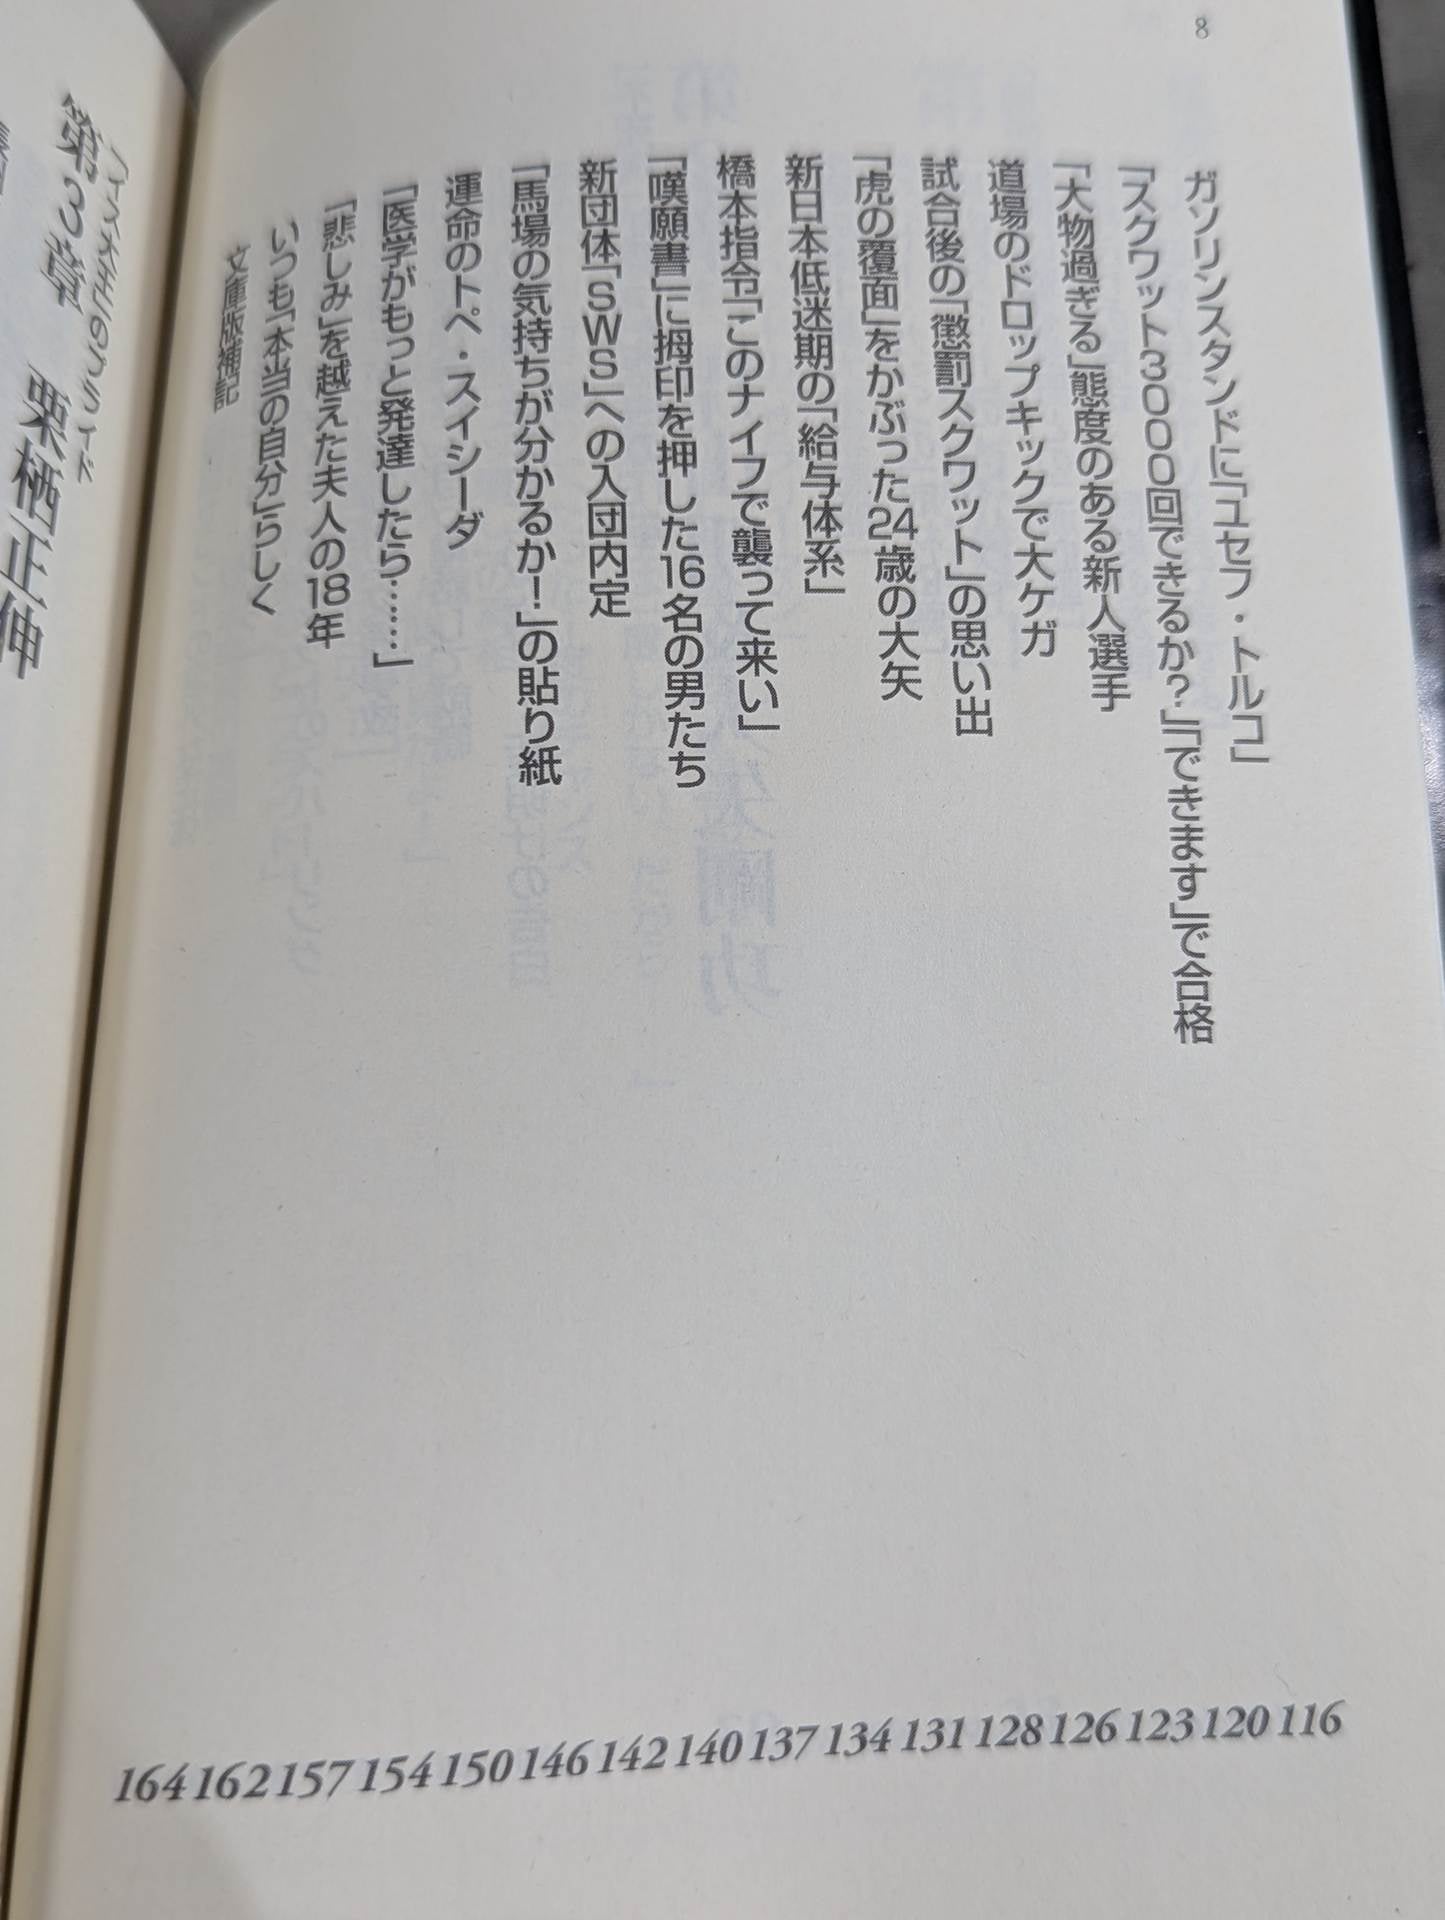 8
ガソリンスタンドに「ユセフ・トルコ」
「スクワット3000回できるか?」「できます」で合格
「大物過ぎる」態度のある新人選手
道場のドロップキックで大ケガ
試合後の「懲罰スクワット」の思い出
「虎の覆面」をかぶった24歳の大矢
新日本低迷期の「給与体系」
橋本指令「このナイフで襲って来い」
「嘆願書」に拇印を押した16名の男たち
新団体「SWS」への入団内定
「馬場の気持ちが分かるか!」の貼り紙
運命のトペ・スイシーダ
「医学がもっと発達したら……」
「悲しみ」を越えた夫人の18年
いつも「本当の自分」らしく
文庫版補記
116
120
123
126
128
131
134
137
140
142
146
150
154
157
162
164
第3章 栗栖正伸
「イス大王」のプライド